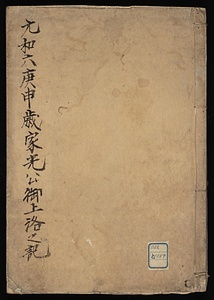 元和六庚申歳家光公御上洛之記